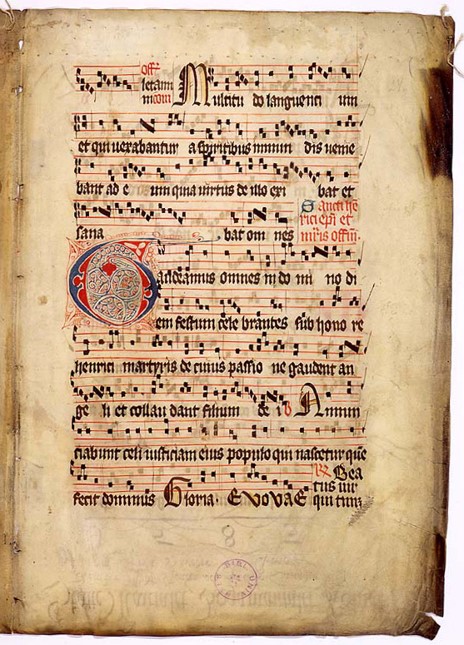 Off.
letam
m com Multitu do languenci um
et qui uexabantur a spiritibus inmun dis uenie
bant ad e um quia uirtus de illo exi bat et
sana bat om nes
Sancti he
rici epi et
mris offm.
Gaudeamus omnes in do mi no di
em festum cele brantes sub hono re
henrici martyris de cuius passio ne gaudent an
ge li et collau dant filium de i v Annun
ciabunt celi iusticiam eius populo qui nascetur que
fecit dominus Gloria. EVOVAE
R Bea
tus uir
qui tim